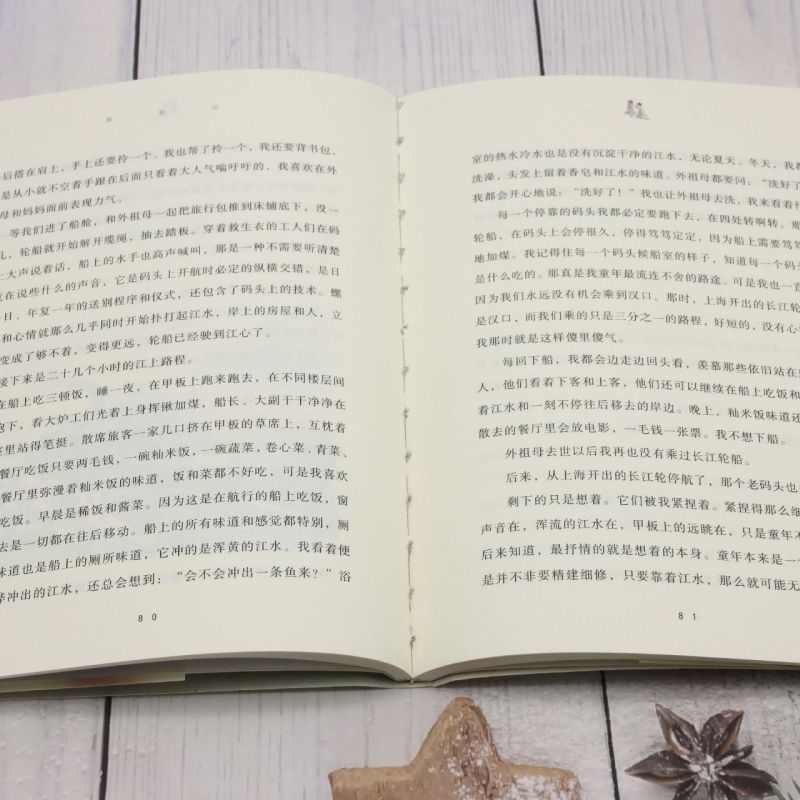 后搭在肩上，手上还要拎一个。我也帮了拎一个，我还要背书包，
是从小就不空着手跟在后面只看着大人气喘吁吁的，我喜欢在外
母和妈妈面前表现力气。
等我们进了船舱，和外祖母一起把旅行包推到床铺底下，没一
儿，轮船就开始解开缆绳，抽去踏板。穿着救生衣的工人们在码
上大声说着话，船上的水手也高声喊叫，那是一种不需要听清楚
在说些什么的声音，它是码头上开航时必定的纵横交错，是日
日、年复一年的送别程序和仪式，还包含了码头上的技术。螺
和心情就那么几乎同时开始扑打起江水，岸上的房屋和人，立
变成了够不着，变得更远，轮船已经驶到江心了。
接下来是二十几个小时的江上路程。
在船上吃三顿饭，睡一夜，在甲板上跑来跑去，在不同楼层间
跑下，看大炉工们光着上身挥锹加煤，船长、大副干干净净在
里站得笔挺。散席旅客一家几口挤在甲板的草席上，互枕着
餐厅吃饭只要两毛钱，一碗籼米饭，一碗蔬菜，卷心菜、青菜、
餐厅里弥漫着籼米饭的味道，饭和菜都不好吃，可是我喜欢
吃饭。早晨是稀饭和酱菜。因为这是在航行的船上吃饭，窗
去是一切都在往后移动。船上的所有味道和感觉都特别，厕
味道也是船上的厕所味道，它冲的是浑黄的江水。我看着便
冲出的江水，还总会想到：“会不会冲出一条鱼来？”浴
80
室的热水冷水也是没有沉淀干净的江水，无论夏天、冬天，我都
洗澡，头发上留着香皂和江水的味道。外祖母都要问：“洗好了
我都会开心地说：“洗好了！”我也让外祖母去洗，我来看着行
每一个停靠的码头我都必定要跑下去，在四处转啊转。那
轮船，在码头上会停很久，停得笃笃定定，因为船上需要笃笃
地加煤。我记得住每一个码头候船室的样子，知道每一个码头
是什么吃的。那真是我童年最流连不舍的路途。可是我也一直
因为我们永远没有机会乘到汉口。那时，上海开出的长江轮
是汉口，而我们乘的只是三分之一的路程，好短的，没有心
我那时就是这样傻里傻气。
每回下船，我都会边走边回头看，羡慕那些依旧站在
人，他们看着下客和上客，他们还可以继续在船上吃饭和
着江水和一刻不停往后移去的岸边。晚上，籼米饭味道还
散去的餐厅里会放电影，一毛钱一张票。我不想下船。
外祖母去世以后我再也没有乘过长江轮船。
后来，从上海开出的长江轮停航了，那个老码头也
剩下的只是想着。它们被我紧捏着。紧捏得那么细
声音在，浑流的江水在，甲板上的远眺在，只是童年不
后来知道，最抒情的就是想着的本身。童年本来是一个
是并不非要精建细修，只要靠着江水，那么就可能无
81